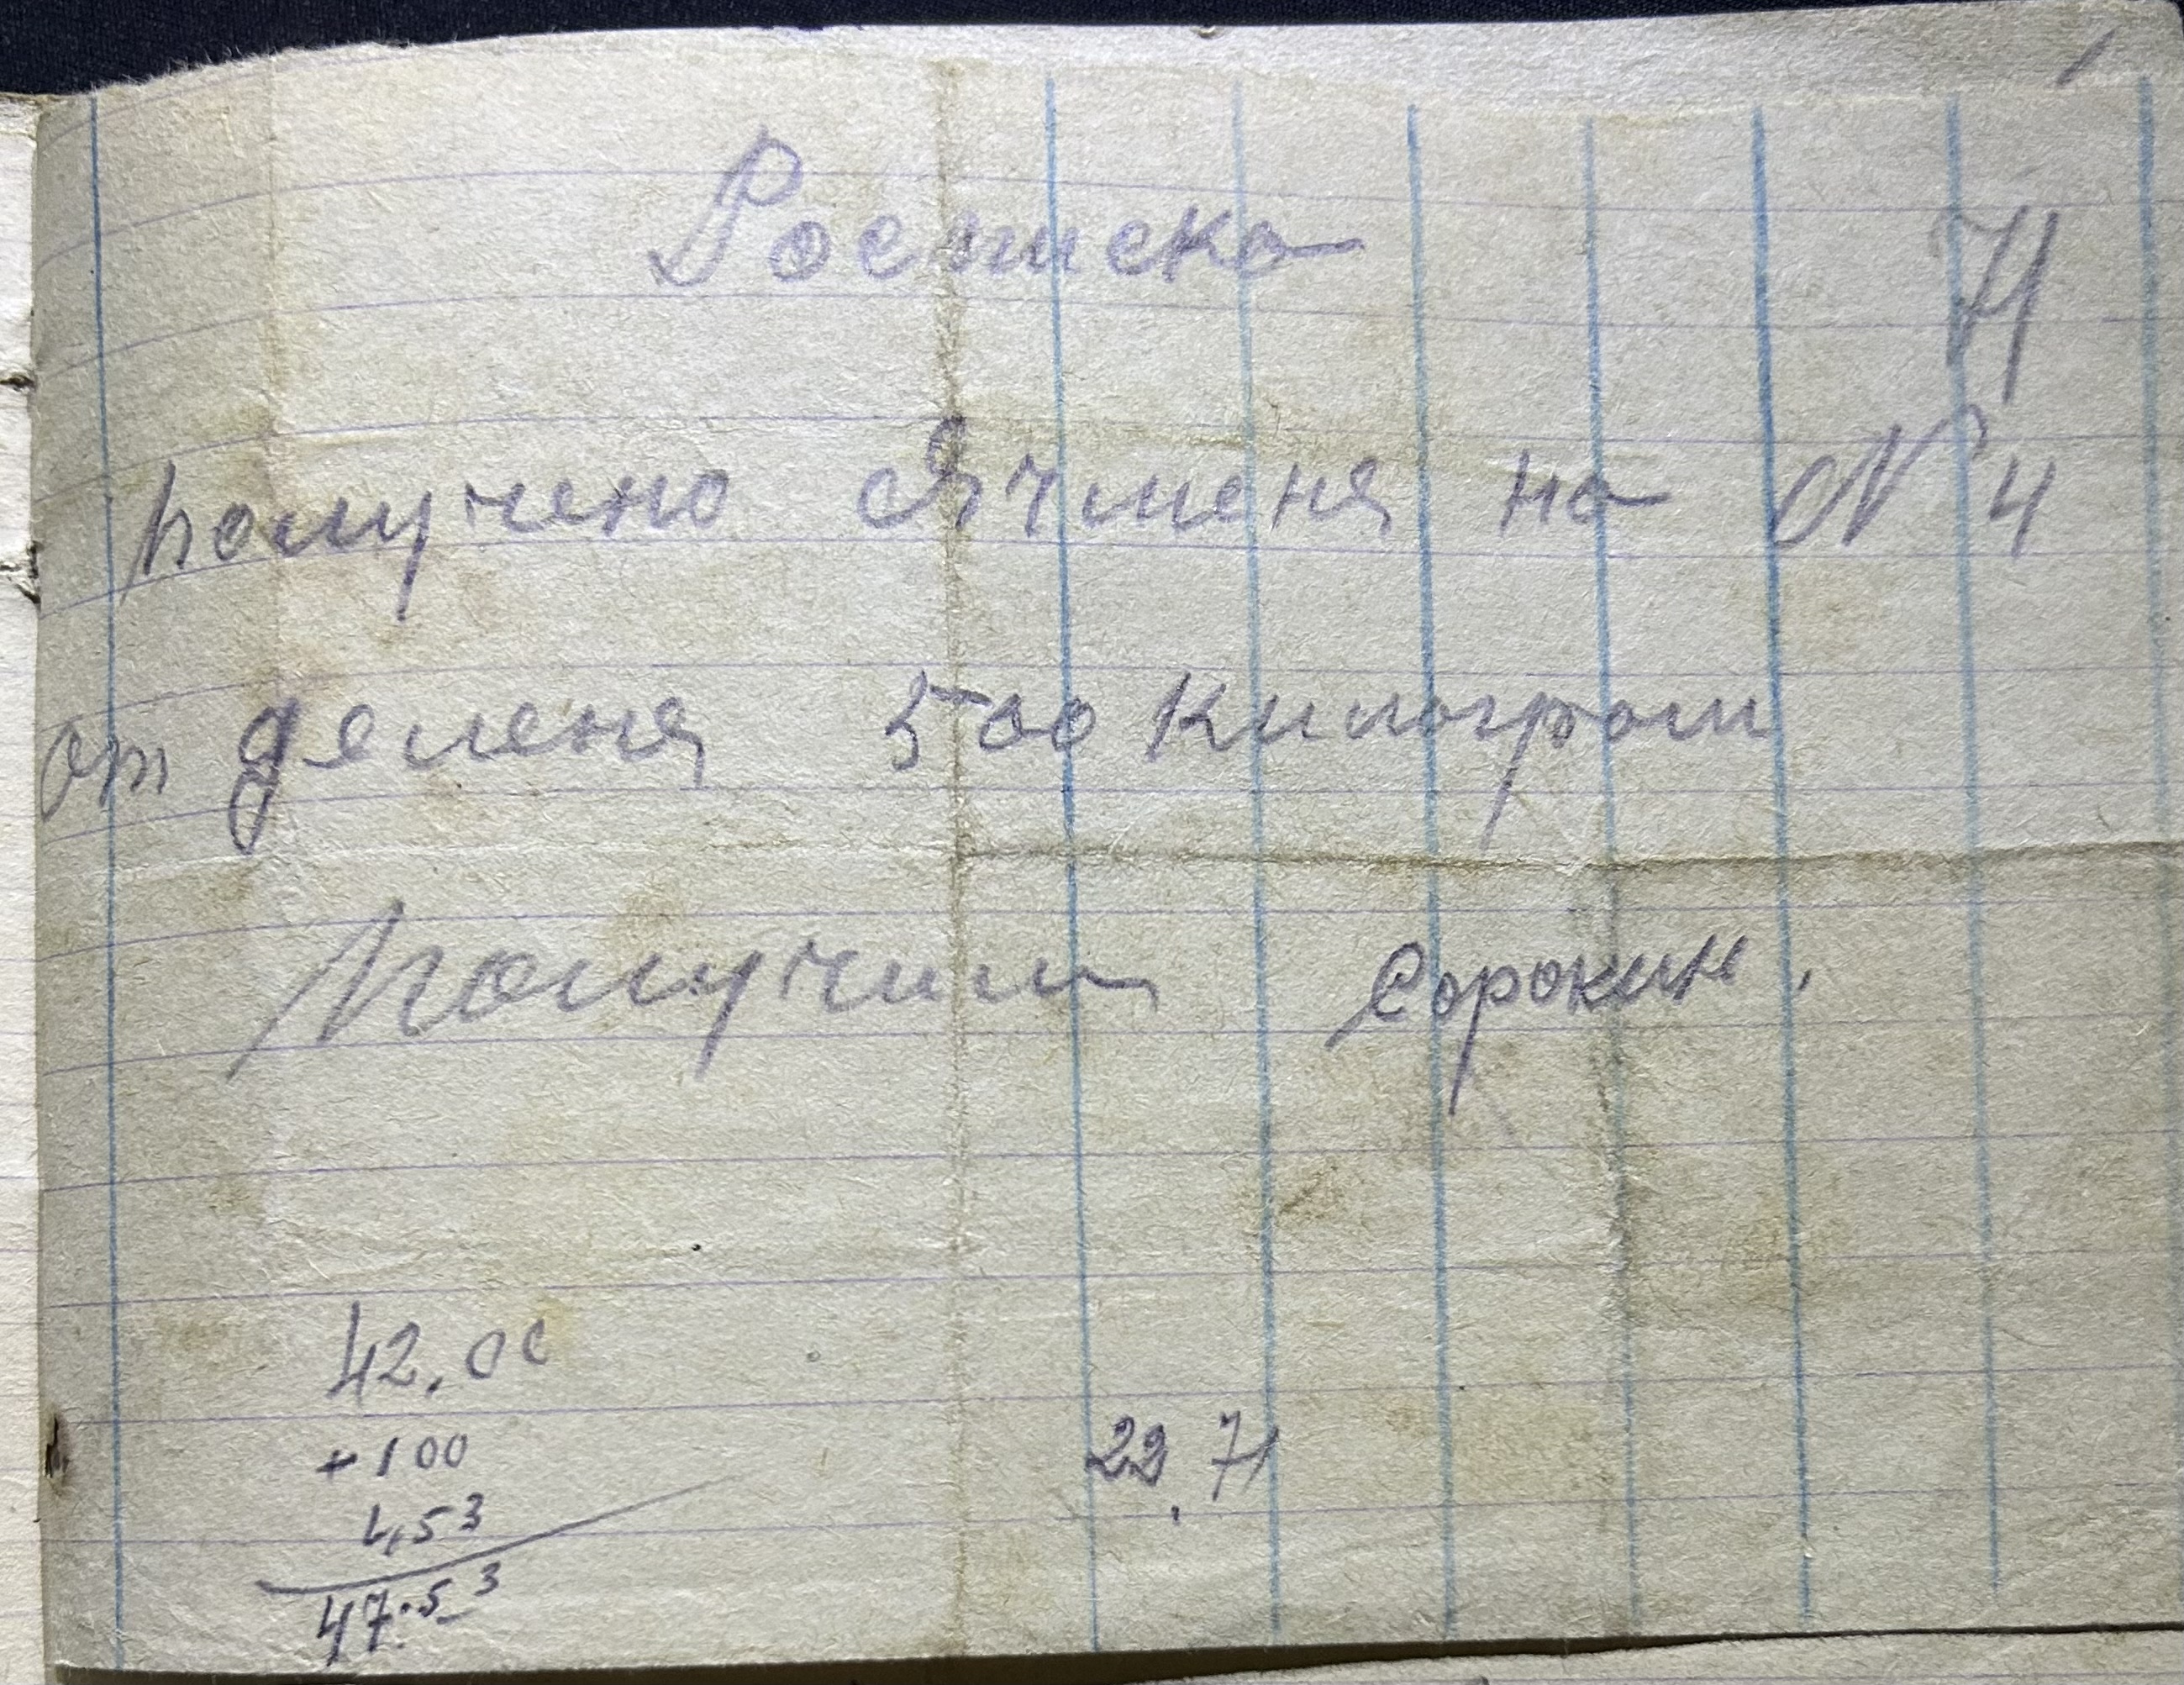 Росписка
71
получено Ячменя на № 4
от деленя 500 килограм
Получил Сорокин.
42.00
+100
453
22.71
47.53